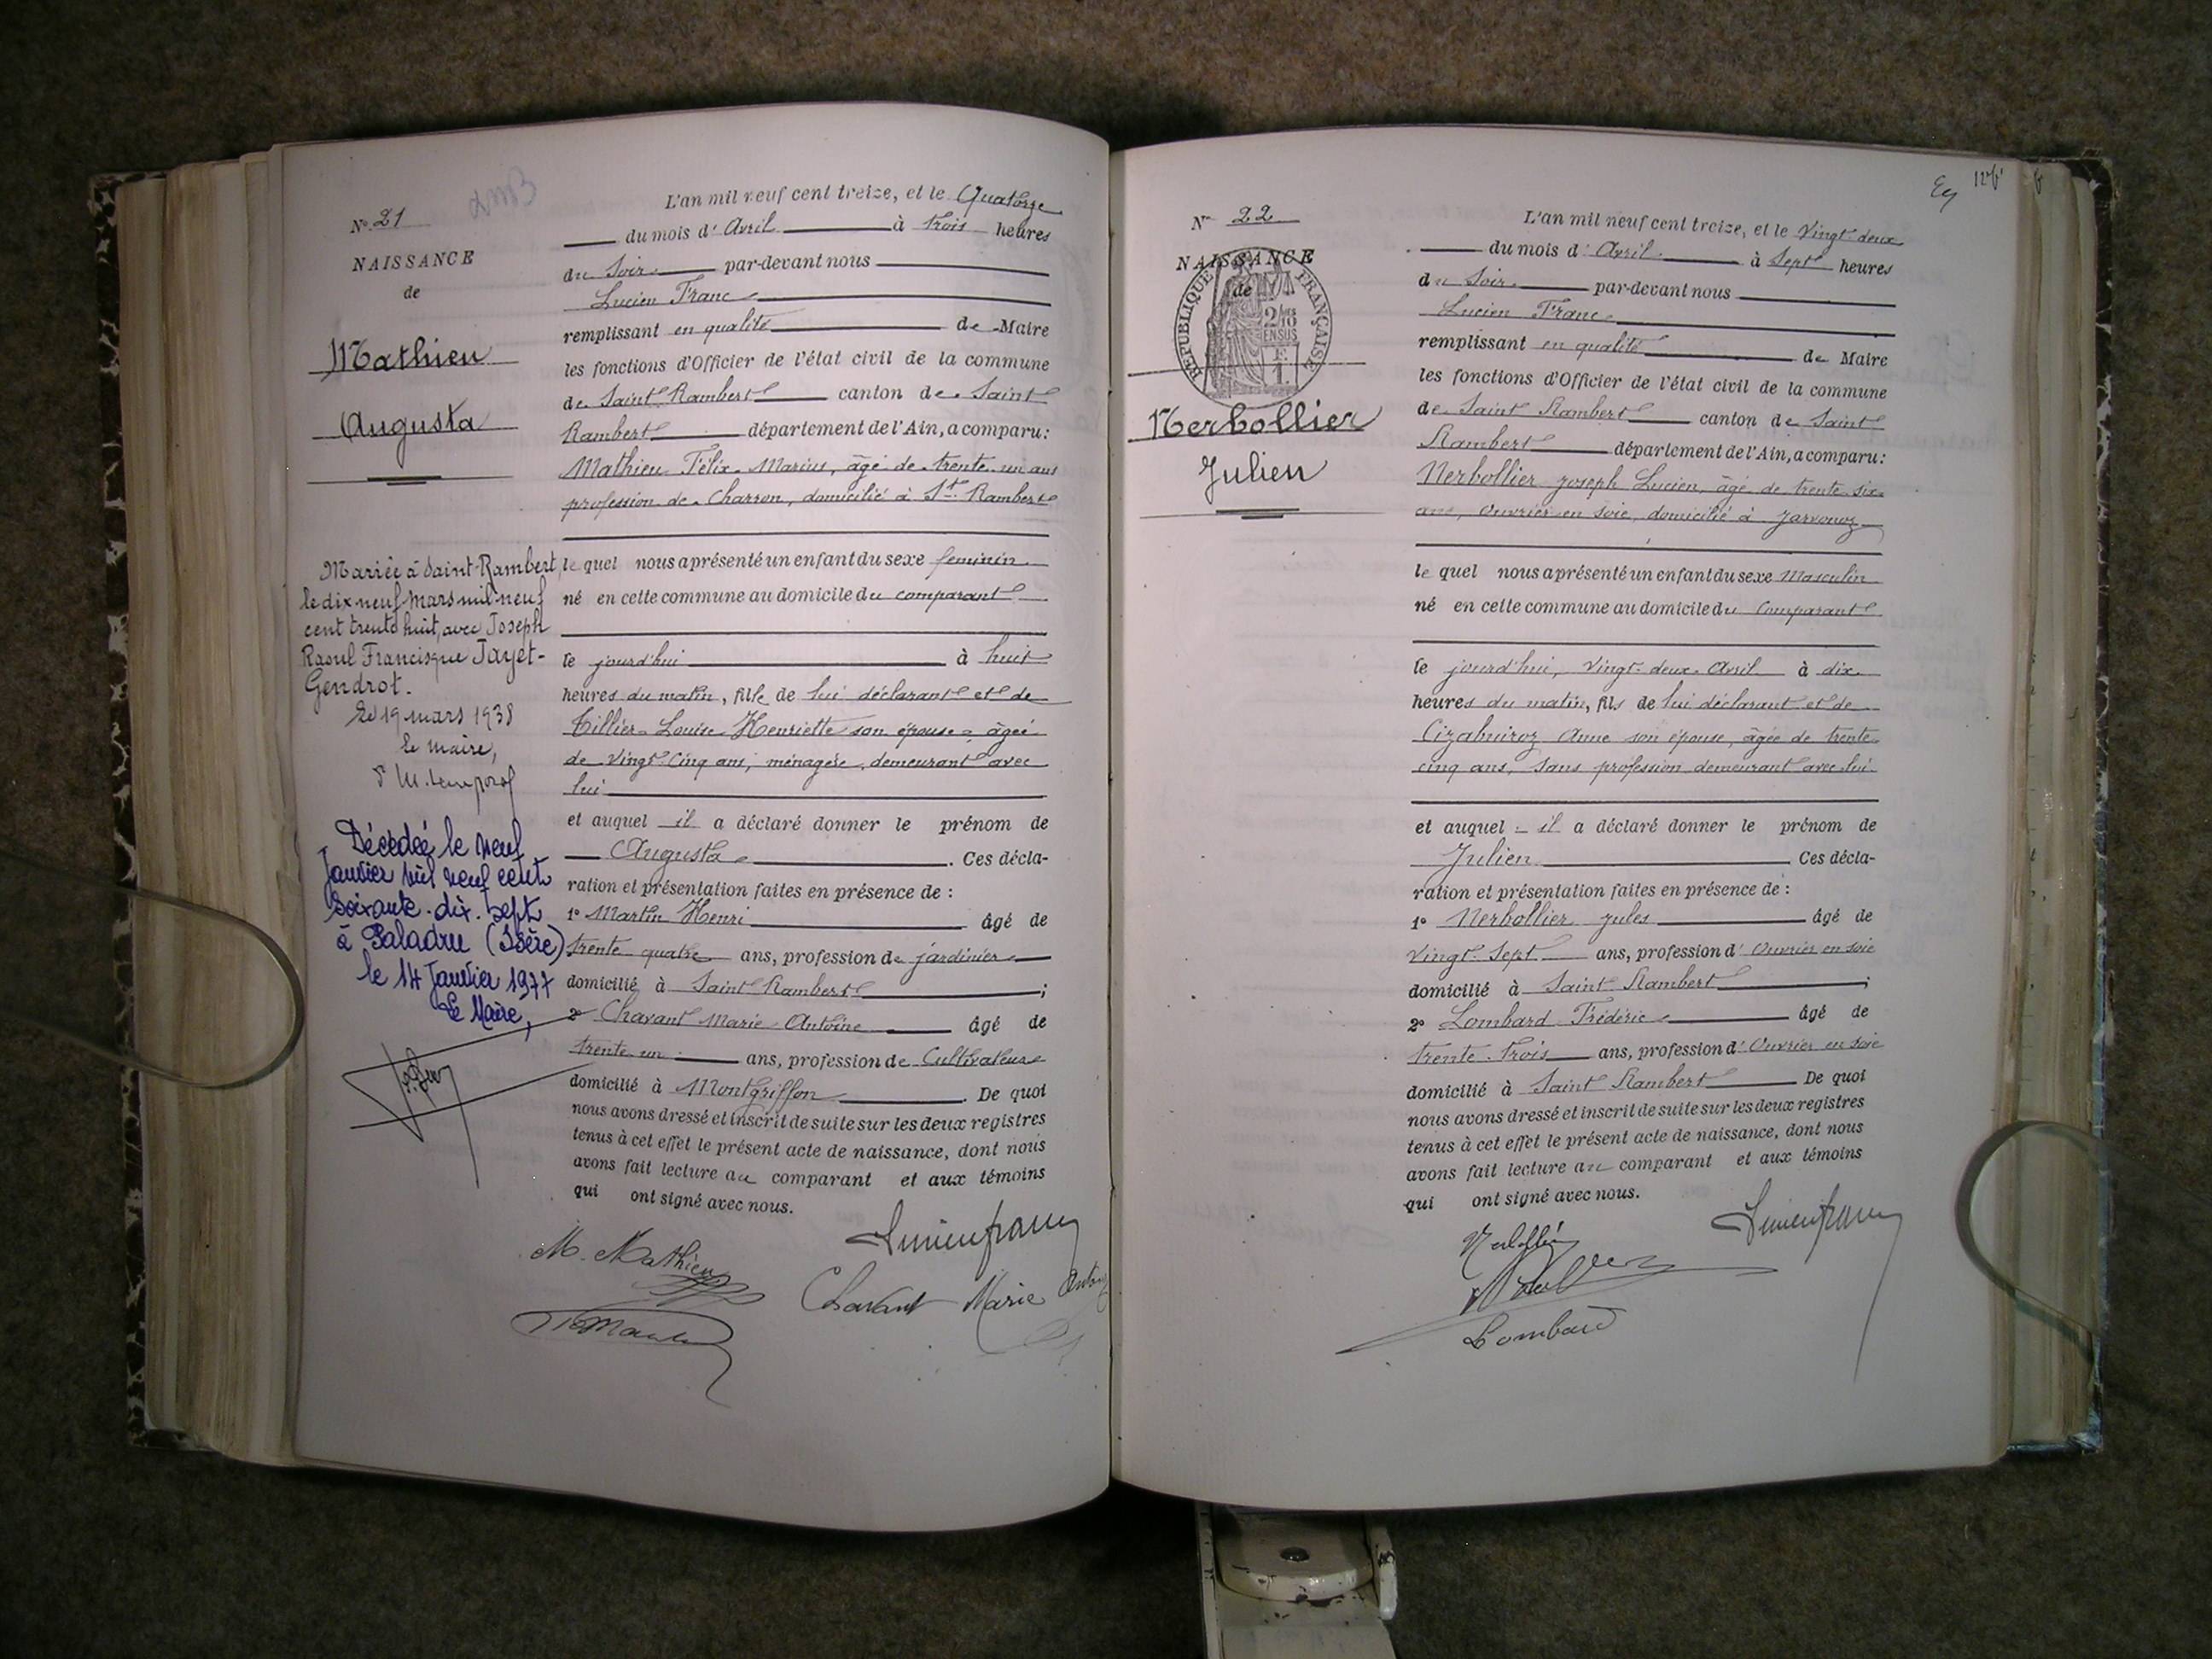 N° 21
NAISSANCE
de
Mathieu
Augusta
Mariée à Saint-Rambert,
le dix neuf mars mil neuf
cent trente huit, avec Joseph
Raoul Francisque Jayet-
Gendrot.
Le 19 mars 1938
Le Maire,
Décédée le neuf
Janvier mil neuf cent
soixante-dix-sept
à Paladru (Isère)
le 14 Janvier 1977
Le Maire,
L'an mil neuf cent treize, et le Quatorze
du mois d' Avril à trois heures
du Soir par-devant nous
Lucien Franc
remplissant en qualité de Maire
les fonctions d'Officier de l'état civil de la commune
de Saint Rambert canton de Saint
Rambert département de l'Ain, a comparu:
Mathieu Félix Marius, âgé de trente un ans
profession de Charron, domicilié à St Rambert
le quel nous a présenté un enfant du sexe feminin
né en cette commune au domicile du comparant
le jourd'hui à huit
heures du matin, fille de lui déclarant et de
Tillier Louise Henriette son épouse âgée
de Vingt Cinq ans, ménagère, demeurant avec
lui
et auquel il a déclaré donner le prénom de
Augusta. Ces décla-
ration et présentation faites en présence de :
1° Martin Henri âgé de
trente quatre ans, profession de jardinier
domicilié à Saint Rambert ;
2° Chavant Marie Antoine âgé de
trente un ans, profession de Cultivateur
domicilié à Montgriffon. De quoi
nous avons dressé et inscrit de suite sur les deux registres
tenus à cet effet le présent acte de naissance, dont nous
avons fait lecture au comparant et aux témoins
qui ont signé avec nous.
Lucien franc
M. Mathieu
Chavant Marie Antoine
N° 22
NAISSANCE
de
RÉPUBLIQUE FRANÇAISE
2/10
EN SUS
F.
1.
Nerbollier
Julien
L'an mil neuf cent treize, et le Vingt-deux
du mois d' Avril à Sept heures
du Soir par-devant nous
Lucien Franc
remplissant en qualité de Maire
les fonctions d'Officier de l'état civil de la commune
de Saint Rambert canton de Saint
Rambert département de l'Ain, a comparu:
Nerbollier Joseph Lucien, âgé de trente six
ans, Ouvrier en soie, domicilié à Javornoz
le quel nous a présenté un enfant du sexe Masculin
né en cette commune au domicile du Comparant
le jourd'hui, Vingt-deux Avril à dix
heures du matin, fils de lui déclarant et de
Anne son épouse, âgée de trente
cinq ans, Sans profession demeurant avec lui
et auquel il a déclaré donner le prénom de
Julien Ces décla-
ration et présentation faites en présence de :
1° Nerbollier Jules âgé de
Vingt Sept ans, profession d' Ouvrier en soie
domicilié à Saint Rambert ;
2° Lombard Frédéric âgé de
trente-trois ans, profession d' Ouvrier en soie
domicilié à Saint Rambert De quoi
nous avons dressé et inscrit de suite sur les deux registres
tenus à cet effet le présent acte de naissance, dont nous
avons fait lecture au comparant et aux témoins
qui ont signé avec nous.
Lucien franc
Lombard